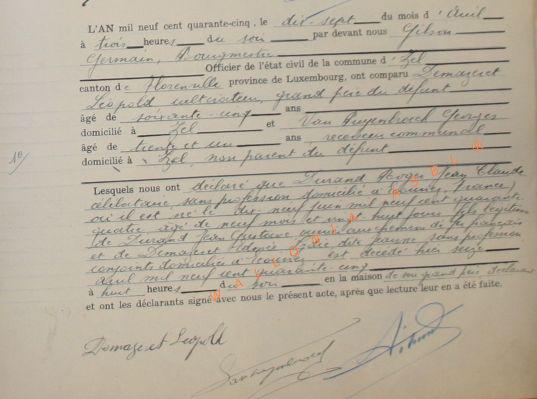 L'AN mil neuf cent quarante-cinq, le dix-sept du mois d'Avril
à trois heures du soir par devant nous Gilson
Germain, Bourgmestre
Officier de l'état civil de la commune d'Izel
canton de Florenville province de Luxembourg, ont comparu Demazeret
Léopold cultivateur, grand père du défunt
âgé de soixante-cinq ans
domicilié à Izel et Van Georges
âgé de trente et un ans receveur communal
domicilié à Izel, non parent du défunt
19
Lesquels nous ont déclaré que Durand Roger Jean Claude
célibataire, sans profession domicilié à (France)
où il est né le dix neuf juin mil neuf cent quarante
quatre âgé de neuf mois et vingt huit jours fils légitime
de Durand Jean Gustave chemin de fer français
et de Demazeret dite Jeanne sans profession
conjoints domiciliés à est décédé hier seize
avril mil neuf cent quarante-cinq
à huit heures du soir en la maison de son grand père déclarant
et ont les déclarants signé avec nous le présent acte, après que lecture leur en a été faite.
Demazeret Léopold